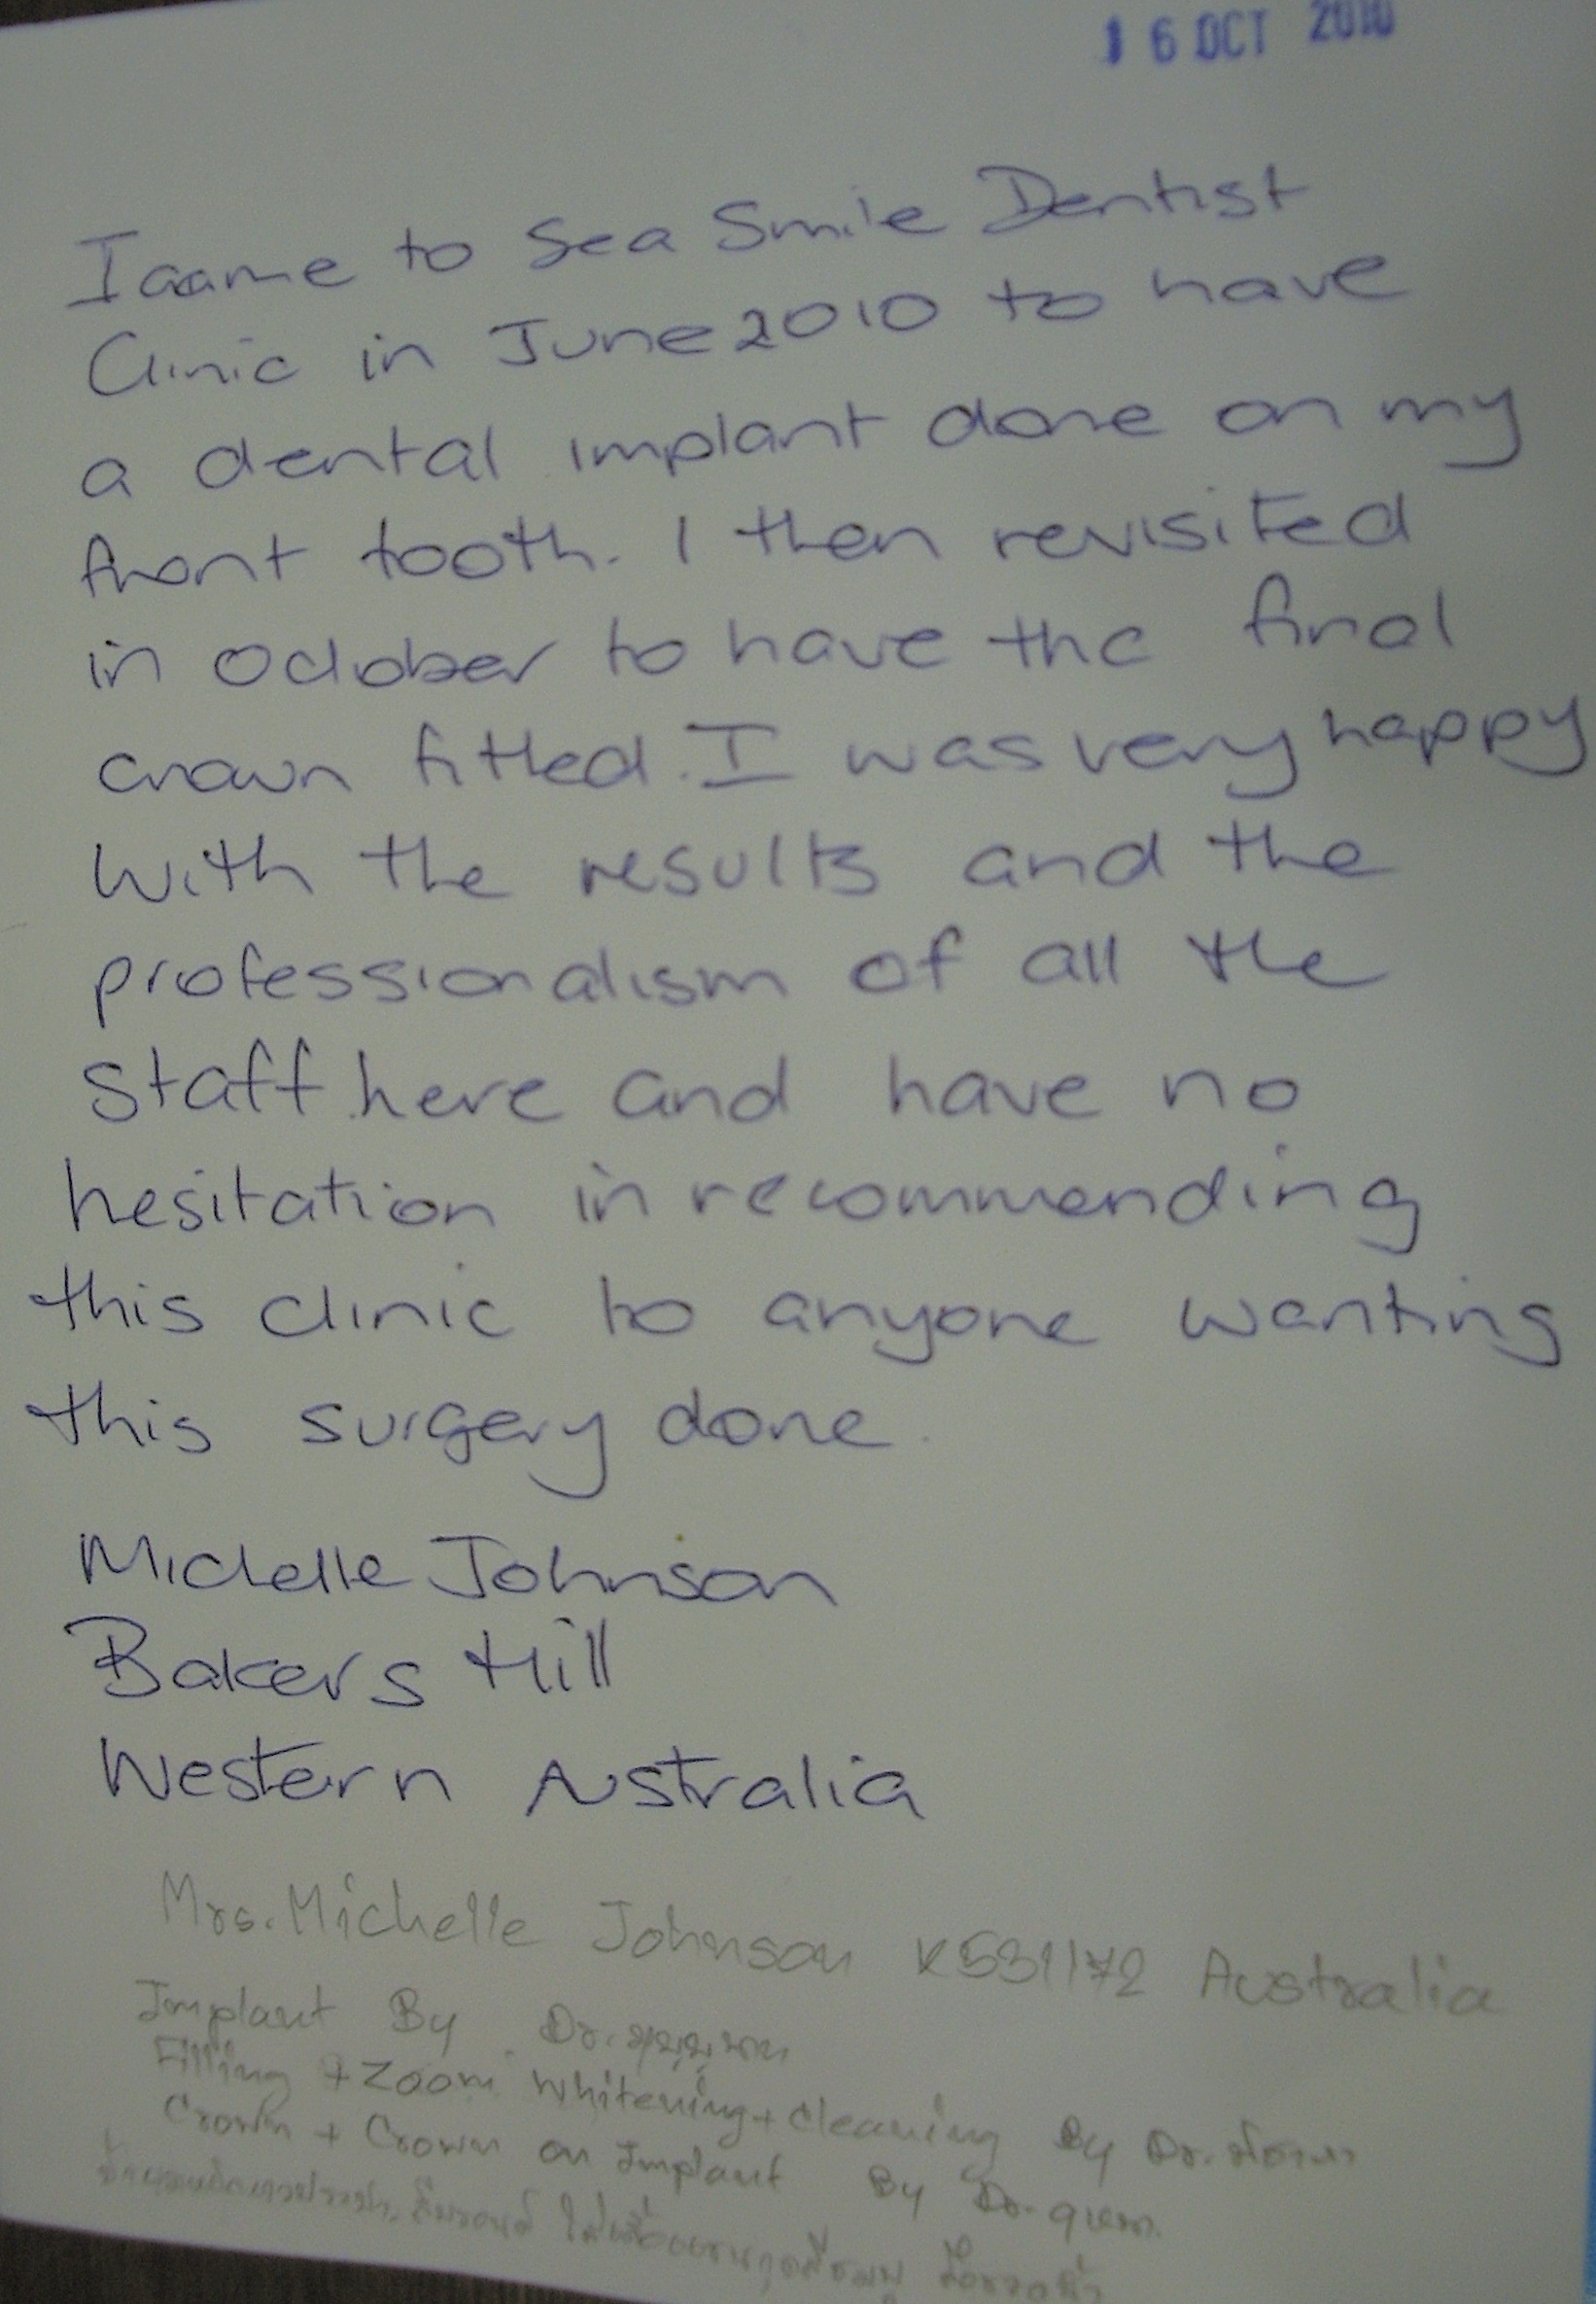 16 OCT 2010
I came to Sea Smile Dentist
Clinic in June 2010 to have
a dental implant done on my
front tooth. I then revisited
in October to have the final
crown fitted. I was very happy
with the results and the
professionalism of all the
staff here and have no
hesitation in recommending
this clinic to anyone wanting
this surgery done.
Michelle Johnson
Bakers Hill
Western Australia
Mrs. Michelle Johnson K531172 Australia
Implant By Dr.
Filling + Zoom Whitening + cleaning By Dr.
Crown + Crown on Implant By Dr.